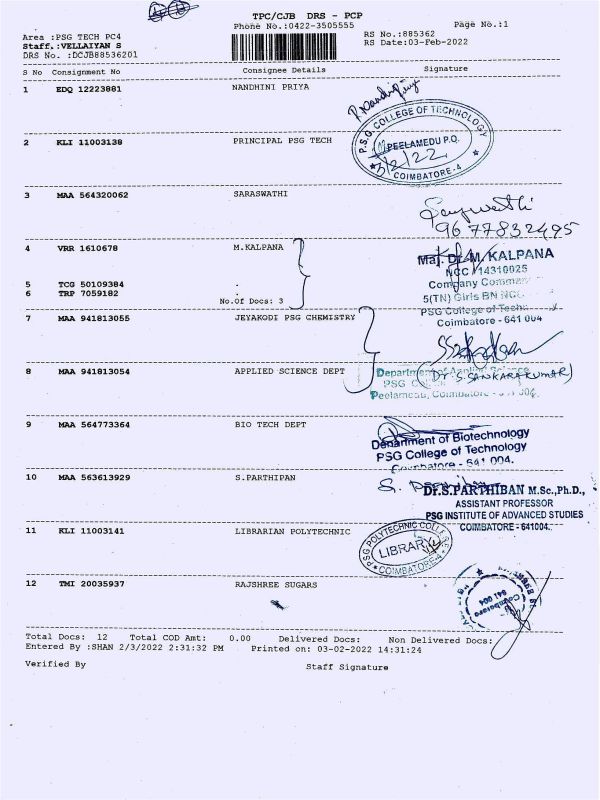 TPC/CJB DRS - PCP
Phone No.:0422-3505555
Page No.:1
Area :PSG TECH PC4
Staff.:VELLAIYAN S
DRS No. :DCJB88536201
RS No.:885362
RS Date:03-Feb-2022
S No Consignment No Consignee Details Signature
1 EDQ 12223881 NANDHINI PRIYA
2 KLI 11003138 PRINCIPAL PSG TECH
P.S.G. COLLEGE OF TECHNOLOGY
PEELAMEDU P.O.
3/2/22
COIMBATORE-4
3 MAA 564320062 SARASWATHI
9677832495
4 VRR 1610678 M.KALPANA
Maj. Dr. M. KALPANA
NCC / 14310025
5 TCG 50109384 .
Company
6 TRP 7059182 .
No.Of Docs: 3
5(TN) Girls BN NCC
PSG College of
Coimbatore - 641 004
7 MAA 941813055 JEYAKODI PSG CHEMISTRY
8 MAA 941813054 APPLIED SCIENCE DEPT
Department of Applied Science
(Dr. S. SANKARAKUMAR)
PSG
Peelamedu, Coimbatore
9 MAA 564773364 BIO TECH DEPT
Department of Biotechnology
PSG College of Technology
Coimbatore - 641 004.
10 MAA 563613929 S.PARTHIPAN
S.
Dr.S.PARTHIBAN M.Sc.,Ph.D.,
ASSISTANT PROFESSOR
PSG INSTITUTE OF ADVANCED STUDIES
COIMBATORE - 641004.
11 KLI 11003141 LIBRARIAN POLYTECHNIC
PSG POLYTECHNIC COLLEGE
LIBRARY
COIMBATORE-4
12 TMI 20035937 RAJSHREE SUGARS
Coimbatore
641 004
Total Docs: 12 Total COD Amt: 0.00 Delivered Docs: Non Delivered Docs:
Entered By :SHAN 2/3/2022 2:31:32 PM Printed on: 03-02-2022 14:31:24
Verified By Staff Signature